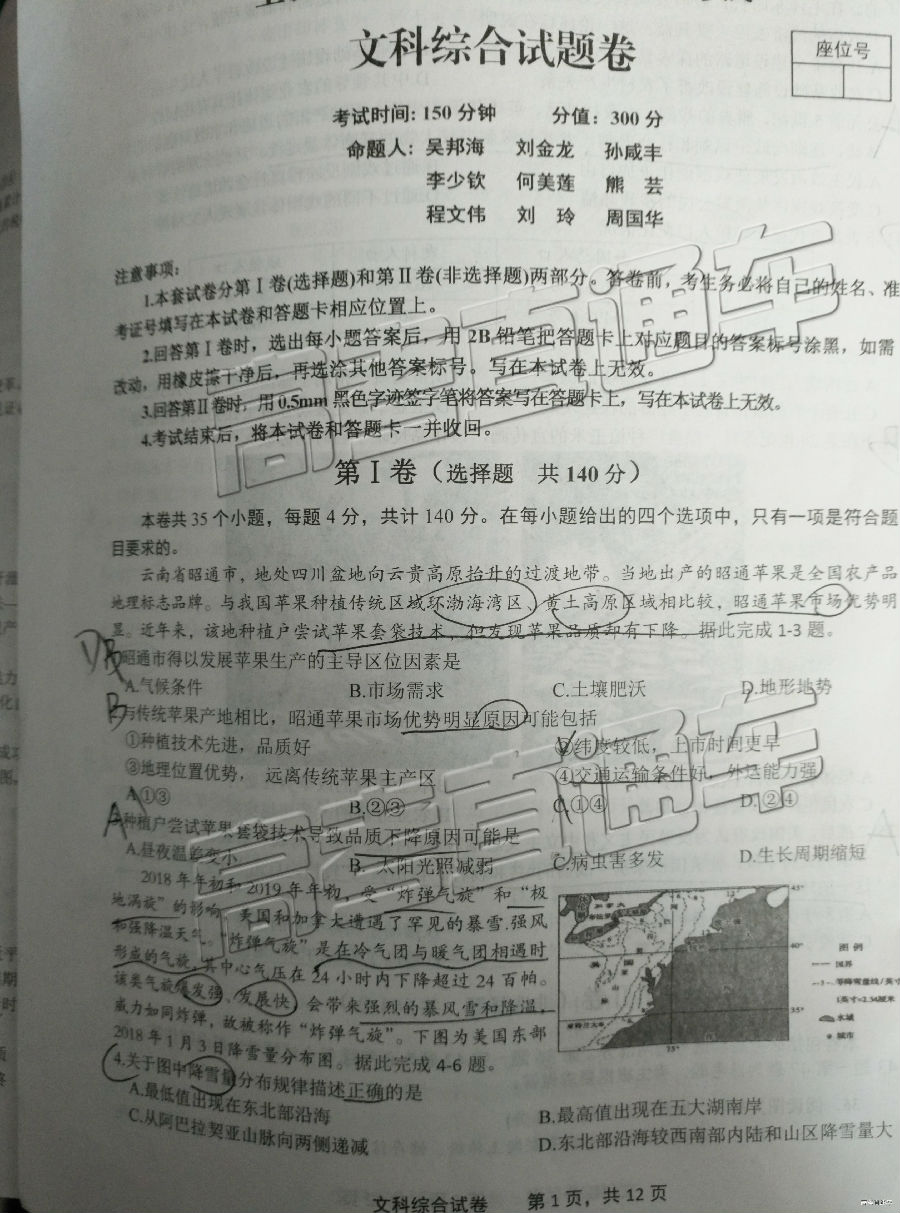 文科综合试题卷
座位号
考试时间: 150 分钟 分值: 300 分
命题人: 吴邦海 刘金龙 孙咸丰
李少钦 何美莲 熊 芸
程文伟 刘 玲 周国华
注意事项:
1.本套试卷分第Ⅰ卷(选择题)和第Ⅱ卷(非选择题)两部分。答卷前，考生务必将自己的姓名、准
考证号填写在本试卷和答题卡相应位置上。
2.回答第Ⅰ卷时，选出每小题答案后，用 2B 铅笔把答题卡上对应题目的答案标号涂黑，如需
改动，用橡皮擦干净后，再选涂其他答案标号。写在本试卷上无效。
3.回答第Ⅱ卷时，用 0.5mm 黑色字迹签字笔将答案写在答题卡上，写在本试卷上无效。
4.考试结束后，将本试卷和答题卡一并收回。
高考直通车
第Ⅰ卷（选择题 共 140 分）
本卷共 35 个小题，每题 4 分，共计 140 分。在每小题给出的四个选项中，只有一项是符合题
目要求的。
云南省昭通市，地处四川盆地向云贵高原抬升的过渡地带。当地出产的昭通苹果是全国农产品
地理标志品牌。与我国苹果种植传统区域环渤海湾区、黄土高原区域相比较，昭通苹果市场优势明
显。近年来，该地种植户尝试苹果套袋技术，但发现苹果品质却有下降。据此完成 1-3 题。
昭通市得以发展苹果生产的主导区位因素是
A.气候条件 B.市场需求 C.土壤肥沃 D.地形地势
B
与传统苹果产地相比，昭通苹果市场优势明显原因可能包括
①种植技术先进，品质好 ②纬度较低，上市时间更早
③地理位置优势， 远离传统苹果主产区 ④交通运输条件好，外运能力强
A.①③ B.②③ C.①④ D.②④
A
种植户尝试苹果套袋技术导致品质下降原因可能是
A.昼夜温差变小 B. 太阳光照减弱 C.病虫害多发 D.生长周期缩短
高考直通车
2018 年年初和 2019 年年初，受“炸弹气旋”和“极
地涡旋”的影响，美国和加拿大遭遇了罕见的暴雪.强风
和强降温天气。“炸弹气旋”是在冷气团与暖气团相遇时
形成的气旋,其中心气压在 24 小时内下降超过 24 百帕。
该类气旋爆发强、发展快，会带来强烈的暴风雪和降温，
威力如同炸弹，故被称作“炸弹气旋”。下图为美国东部
2018 年 1 月 3 日降雪量分布图。据此完成 4-6 题。
45°
40°
35°
75°
图 例
国界
等降雪量线/英寸
1英寸=2.54厘米
水域
城市
4.关于图中降雪量分布规律描述正确的是
A.最低值出现在东北部沿海 B.最高值出现在五大湖南岸
C.从阿巴拉契亚山脉向两侧递减 D.东北部沿海较西南部内陆和山区降雪量大
文科综合试卷 第 1 页，共 12 页